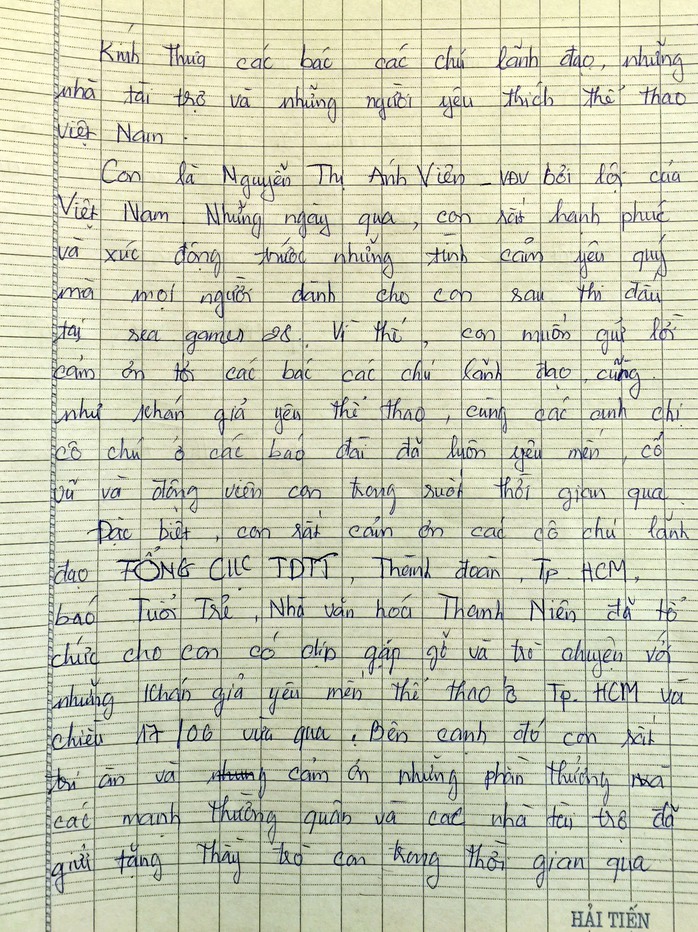 Kính thưa các bác các chú lãnh đạo, những
nhà tài trợ và những người yêu thích thể thao
Việt Nam.
Con là Nguyễn Thị Ánh Viên - VĐV bơi lội của
Việt Nam. Những ngày qua, con rất hạnh phúc
và xúc động trước những tình cảm yêu quý
mà mọi người dành cho con sau thi đấu
tại sea games 28. Vì thế, con muốn gửi lời
cám ơn tới các bác các chú lãnh đạo, cũng
như khán giả yêu thể thao, cùng các anh chị
cô chú ở các báo đài đã luôn yêu mến, cổ
vũ và động viên con trong suốt thời gian qua.
Đặc biệt, con rất cảm ơn các cô chú lãnh
đạo TỔNG CỤC TDTT, Thành đoàn, Tp. HCM,
báo Tuổi Trẻ, Nhà văn hoá Thanh Niên đã tổ
chức cho con có dịp gặp gỡ và trò chuyện với
những khán giả yêu mến thể thao ở Tp. HCM và
chiều 17/06 vừa qua. Bên cạnh đó con rất
tri ân và cảm ơn những phần thưởng mà
các mạnh thường quân và các nhà tài trợ đã
gửi tặng thầy trò con trong thời gian qua
HẢI TIẾN